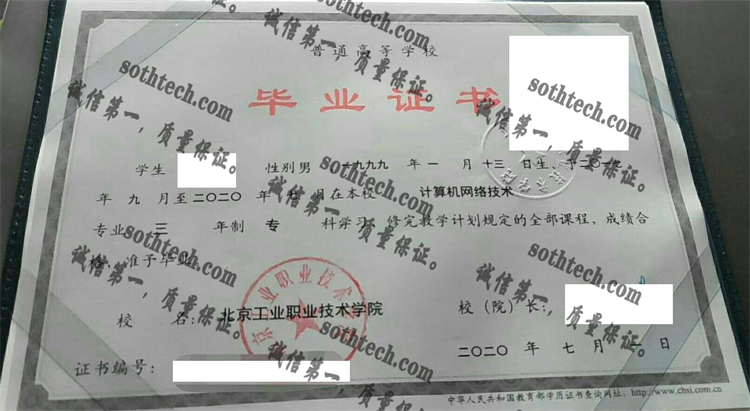 普通高等学校
毕业证书
学生 性别男 一九九九 年 一 月 十三 日生，于二〇一
年 九 月至二〇二〇 年 月在本校 计算机网络技术
专业 三 年制 专 科学习，修完教学计划规定的全部课程，成绩合
格，准予毕业。
校 名：北京工业职业技术学院
校（院）长：
二〇二〇 年 七 月 日
证书编号：
中华人民共和国教育部学历证书查询网址：http://www.chsi.com.cn
北京工业职业技术
sothtech.com
诚信第一，质量保证。
sothtech.com
诚信第一，质量保证。
sothtech.com
诚信第一，质量保证。
sothtech.com
诚信第一，质量保证。
sothtech.com
诚信第一，质量保证。
sothtech.com
诚信第一，质量保证。
sothtech.com
诚信第一，质量保证。
sothtech.com